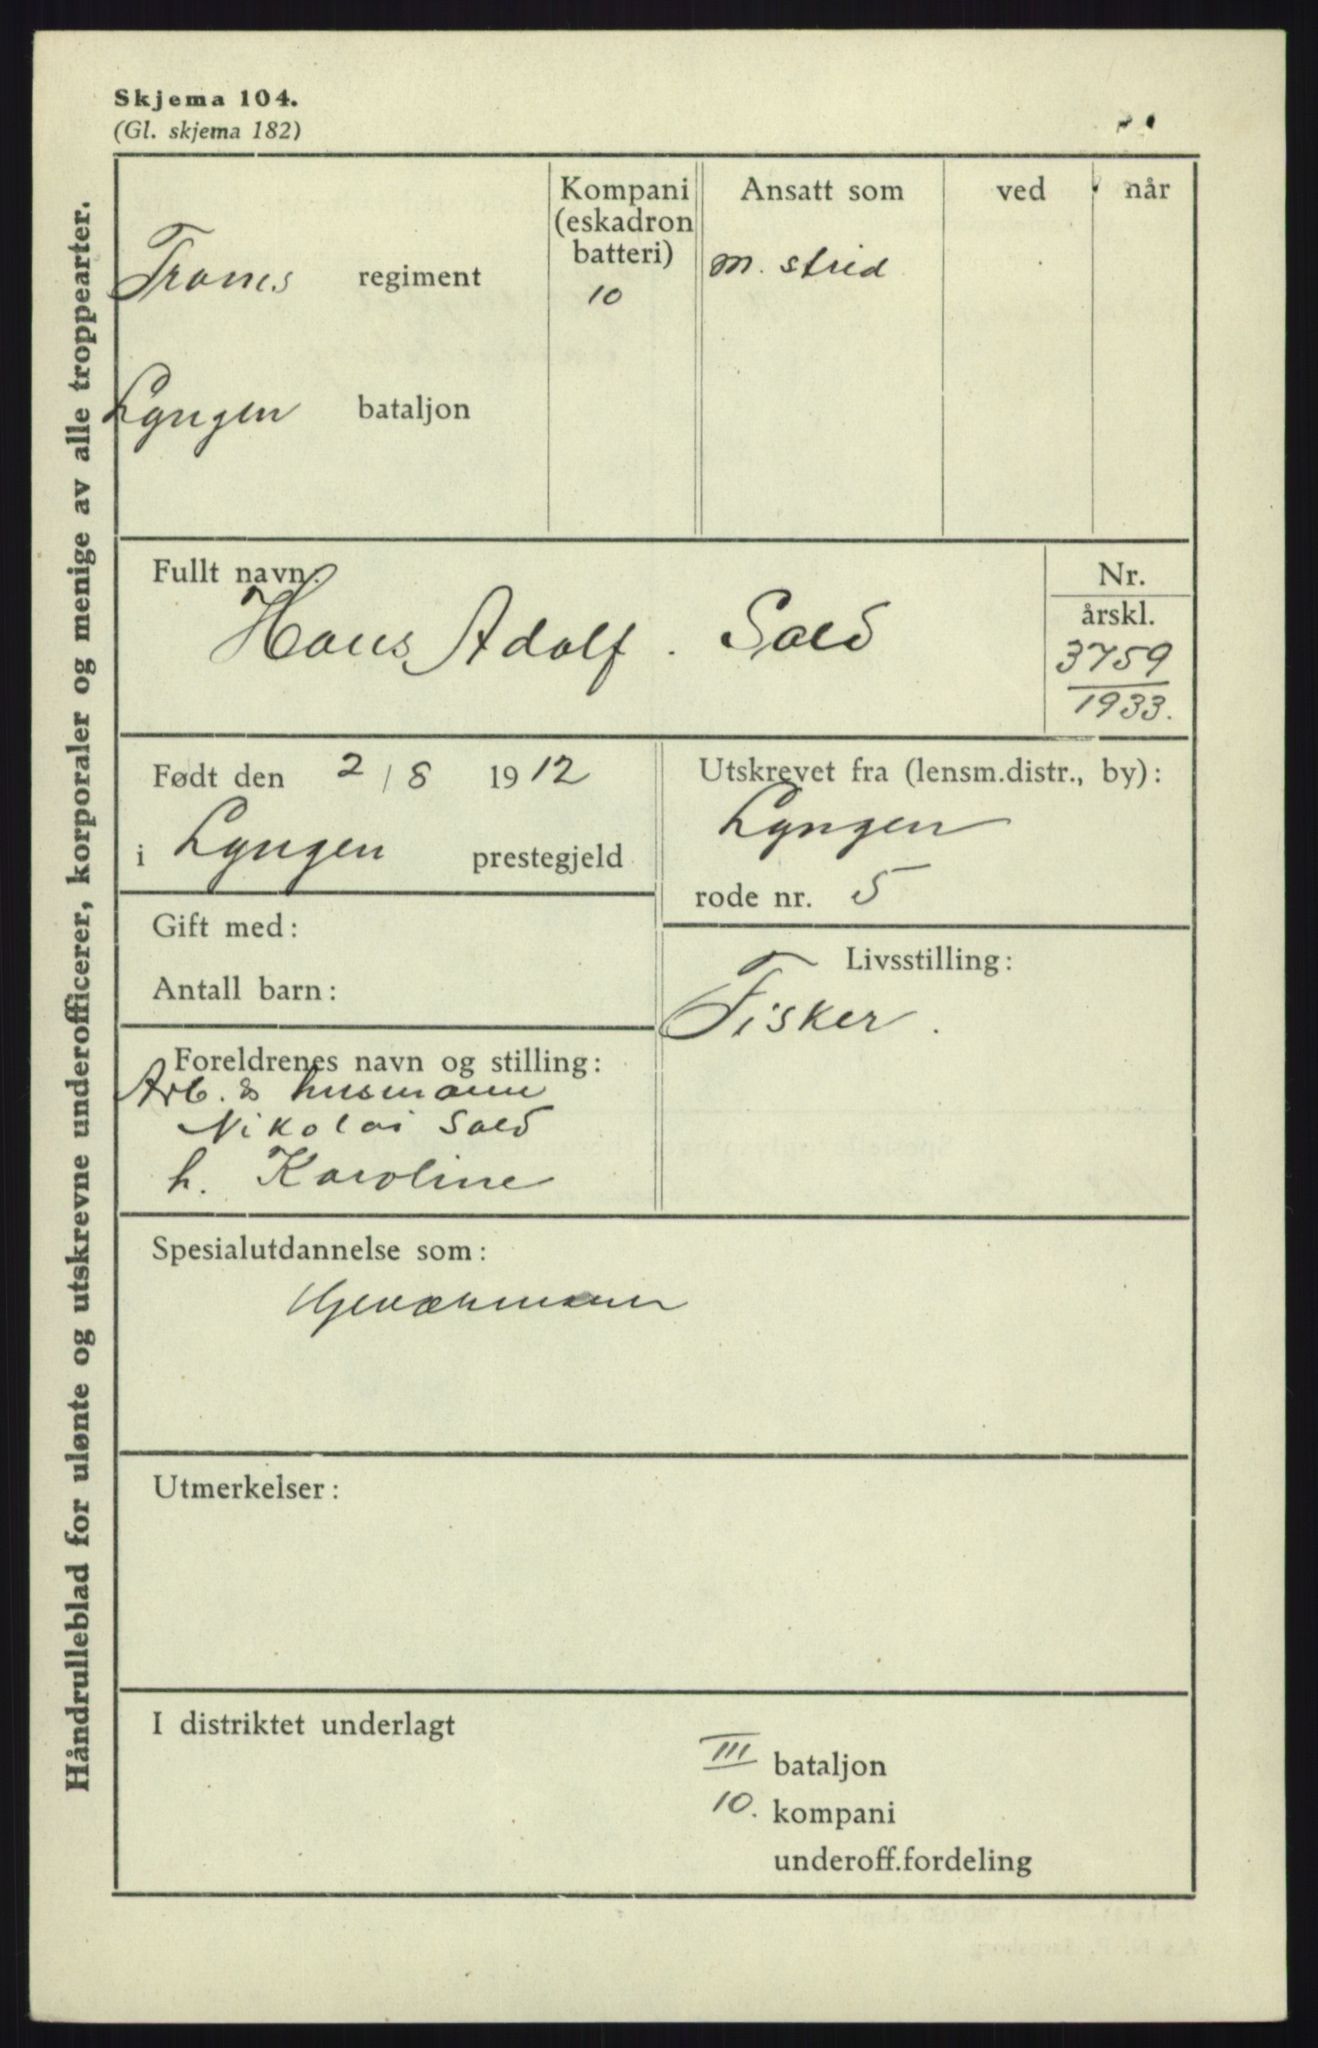 Skjema 104.
(Gl. skjema 182)
Håndrulleblad for ulønte og utskrevne underofficerer, korporaler og menige av alle troppearter.
Troms regiment
Lyngen bataljon
Kompani
(eskadron
batteri)
10
Ansatt som
m. strid
ved
når
Fullt navn:
Hans Adolf. Solø
Nr.
årskl.
3759
1933.
Født den 2/8 1912
i Lyngen prestegjeld
Utskrevet fra (lensm.distr., by):
Lyngen
rode nr. 5
Gift med:
Antall barn:
Livsstilling:
Fisker.
Foreldrenes navn og stilling:
Arb. & husmann
Nikolai
h. Karoline
Spesialutdannelse som:
Geværmann
Utmerkelser:
I distriktet underlagt
III bataljon
10. kompani
underoff.fordeling